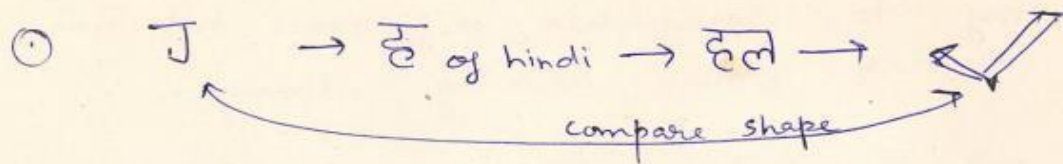 ⊙ J → ह of hindi → हल →
compare shape